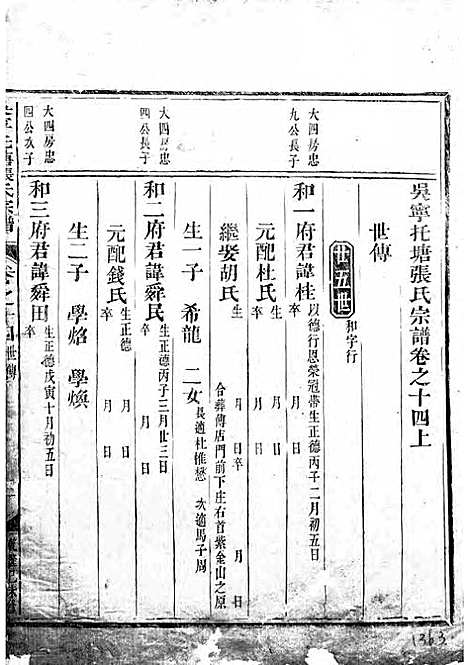 吳寧托塘張氏宗譜卷之十四上
世傳
廿五世
和字行
大四房忠
九公長子
和一府君諱桂
以德行恩榮冠帶生正德丙子二月初五日
卒 月 日
元配杜氏
生 月 日
卒 月 日
繼娶胡氏
生 月 日卒 月 日
合葬傅店門前下庄右首紫金山之原
生一子 希龍 二女
長適杜惟懋 次適馬子周
大四房忠
四公長子
和二府君諱舜民
生正德丙子三月廿三日
卒 月 日
元配錢氏
生 月 日
卒 月 日
生二子 學焰 學煥
大四房忠
四公次子
和三府君諱舜田
生正德戊寅十月初五日
卒
張氏宗譜
卷之十四
世傳
1363